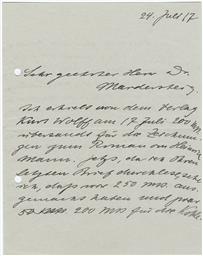 24. Juli 17
Sehr geehrter Herr Dr.
Mardersteig.
Ich erhielt von dem Verlag
Kurt Wolff am 17 Juli 200 Mk.
übersandt für die Zeichnun-
gen zum Roman von Heinrich
Mann. Jetzt, da ich Ihren
letzten Brief durchlese, sehe
ich, dass wir 250 Mk. aus-
gemacht haben und zwar
200 Mk für die